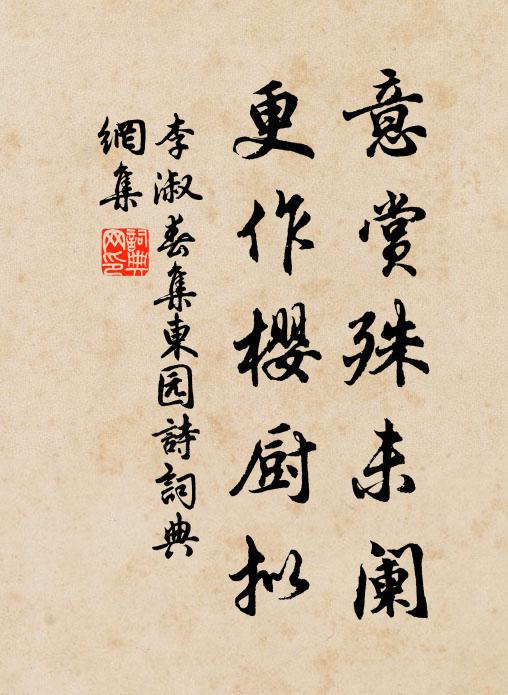 意赏殊未阑
更作樱厨拟
李淑春集東园詩詞典
網集
詞典网印